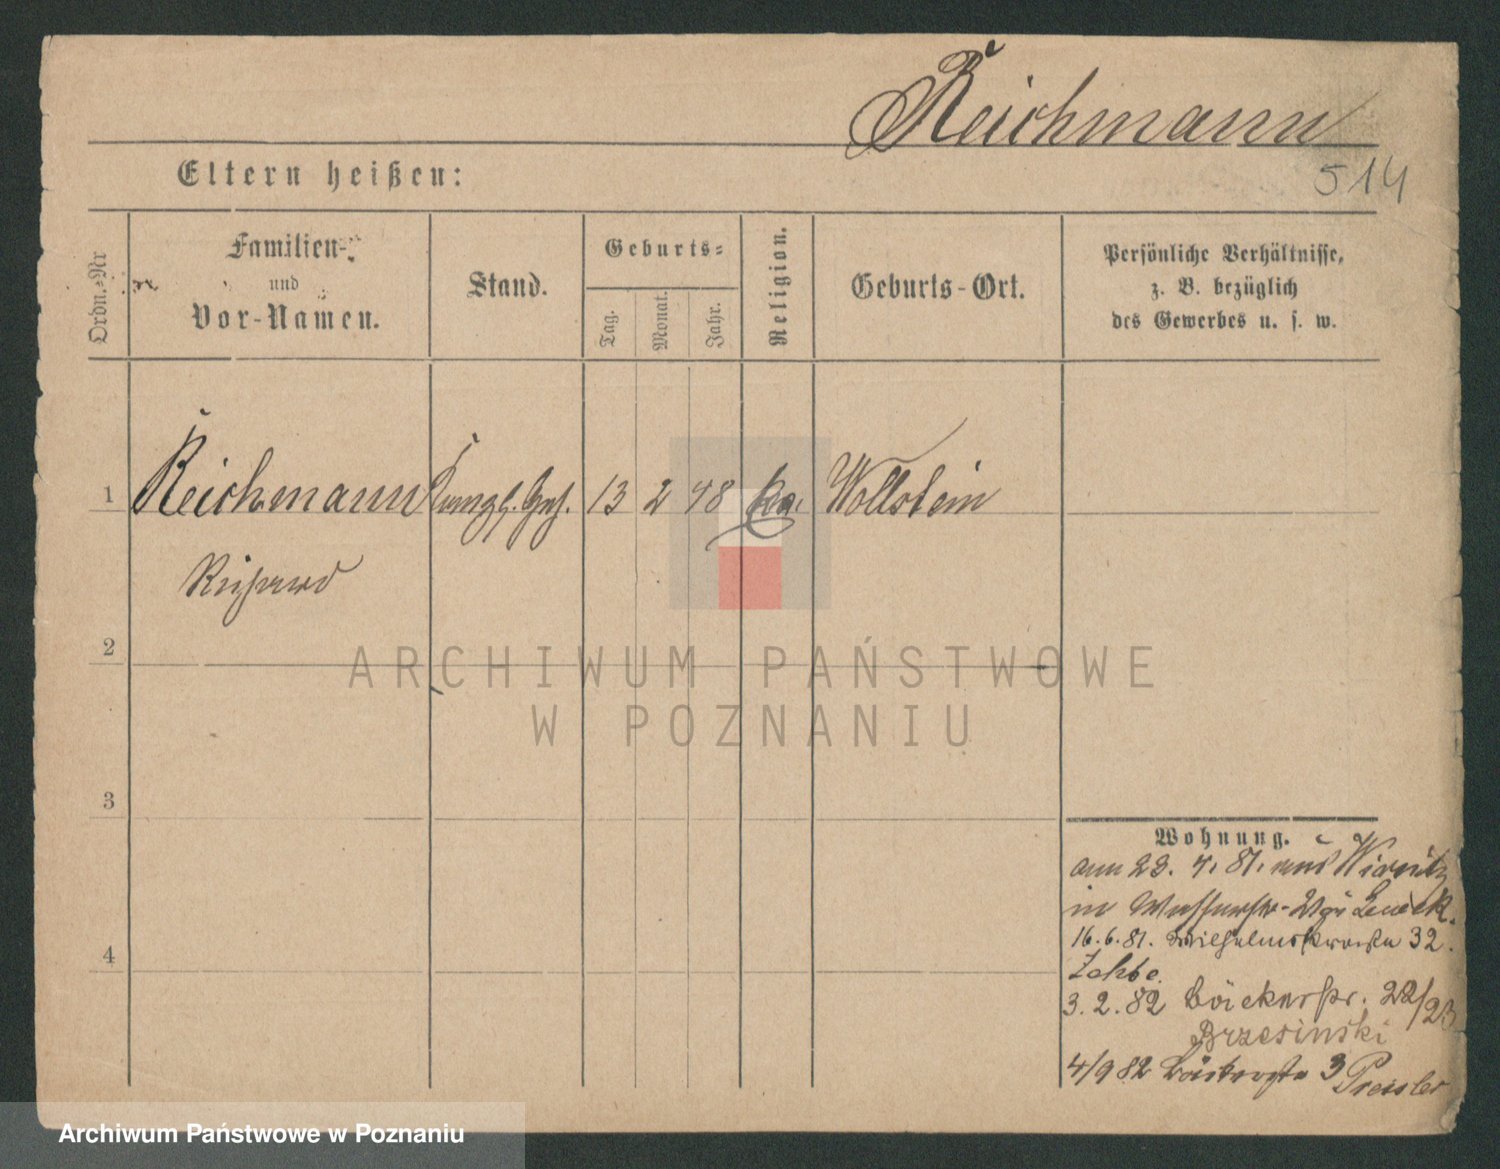 Reichmann
514
Eltern heißen:
Ordn.-Nr
Familien-
und
Vor-Namen.
Stand.
Geburts-
Tag.
Monat.
Jahr.
Religion.
Geburts-Ort.
Persönliche Verhältnisse,
z. B. bezüglich
des Gewerbes u. s. w.
1
Reichmann 13 2 48 Wollstein
Richard
2
3
4
Wohnung.
am 23. 4. 81. aus
in
16.6.81. Wilhelmstraße 32.
3.2.82 Bäckerstr. 22/23
Brzesinski
4/9 82 3
ARCHIWUM PAŃSTWOWE
W POZNANIU
Archiwum Państwowe w Poznaniu